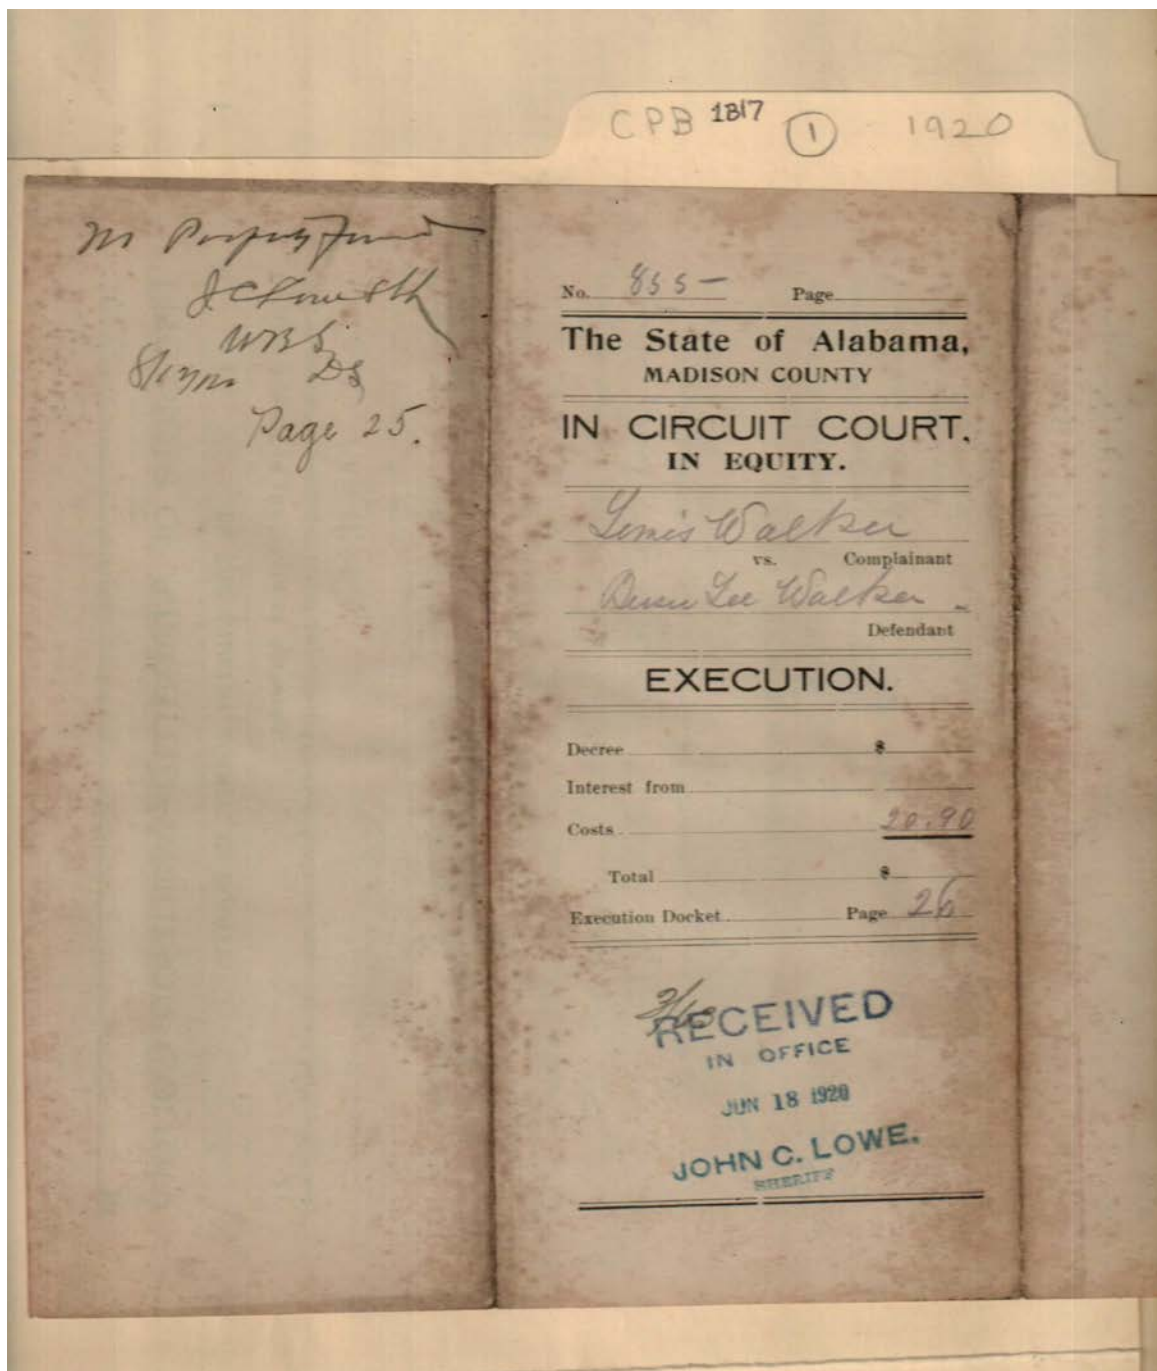 CPB 1317 1 1920
No Property Found
J C Lowe Shff
WBS
DS
Page 25.
No. 855- Page
The State of Alabama,
MADISON COUNTY
IN CIRCUIT COURT,
IN EQUITY.
Lewis Walker
vs. Complainant
Lee Walker
Defendant
EXECUTION.
Decree $
Interest from
Costs 20.90
Total $
Execution Docket Page 26
RECEIVED
IN OFFICE
JUN 18 1920
JOHN C. LOWE.
SHERIFF